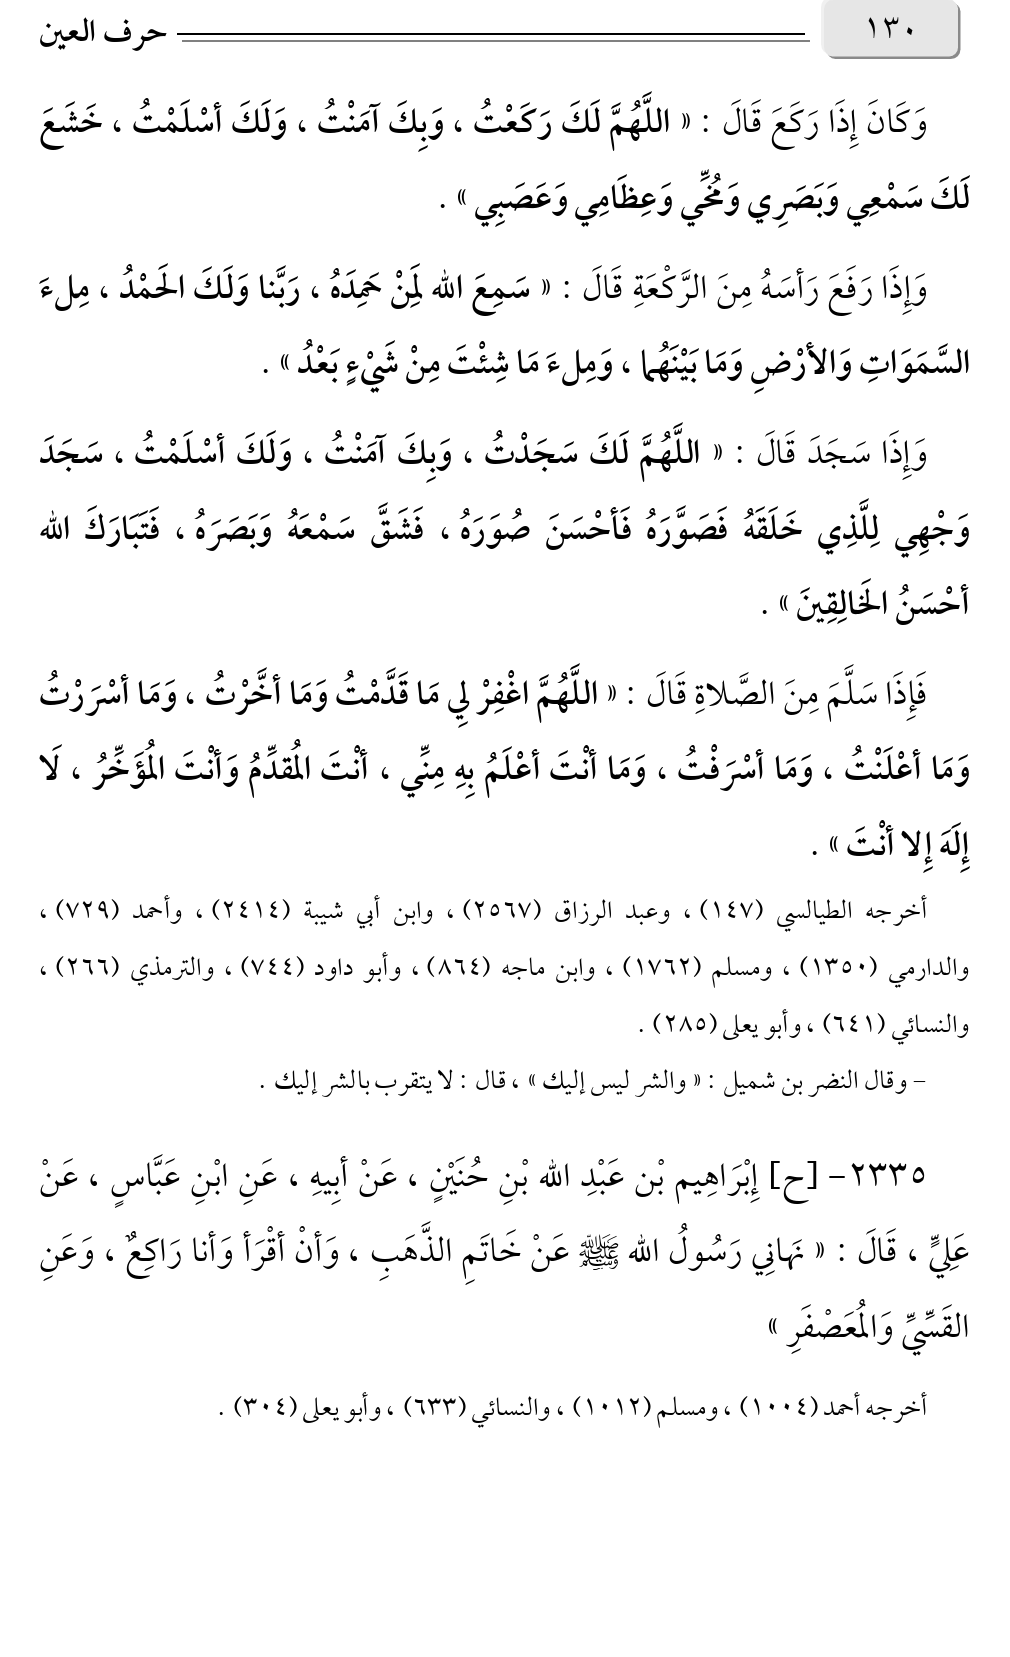 ١٣٠
حرف العين
وَكَانَ إِذَا رَكَعَ قَالَ : « اللَّهُمَّ لَكَ رَكَعْتُ ، وَبِكَ آمَنْتُ ، وَلَكَ أسْلَمْتُ ، خَشَعَ
لَكَ سَمْعِي وَبَصَرِي وَمُخِّي وَعِظَامِي وَعَصَبِي » .
وَإِذَا رَفَعَ رَأسَهُ مِنَ الرَّكْعَةِ قَالَ : « سَمِعَ الله لِمَنْ حَمِدَهُ ، رَبَّنا وَلَكَ الحَمْدُ ، مِلءَ
السَّمَوَاتِ وَالأرْضِ وَمَا بَيْنَهُما ، وَمِلءَ مَا شِئْتَ مِنْ شَيْءٍ بَعْدُ » .
وَإِذَا سَجَدَ قَالَ : « اللَّهُمَّ لَكَ سَجَدْتُ ، وَبِكَ آمَنْتُ ، وَلَكَ أسْلَمْتُ ، سَجَدَ
وَجْهِي لِلَّذِي خَلَقَهُ فَصَوَّرَهُ فَأحْسَنَ صُوَرَهُ ، فَشَقَّ سَمْعَهُ وَبَصَرَهُ ، فَتَبَارَكَ الله
أحْسَنُ الخَالِقِينَ » .
فَإِذَا سَلَّمَ مِنَ الصَّلاةِ قَالَ : « اللَّهُمَّ اغْفِرْ لِي مَا قَدَّمْتُ وَمَا أخَّرْتُ ، وَمَا أسْرَرْتُ
وَمَا أعْلَنْتُ ، وَمَا أسْرَفْتُ ، وَمَا أنْتَ أعْلَمُ بِهِ مِنِّي ، أنْتَ المُقدِّمُ وَأنْتَ المُؤَخِّرُ ، لَا
إِلَهَ إِلا أنْتَ » .
أخرجه الطيالسي (١٤٧) ، وعبد الرزاق (٢٥٦٧) ، وابن أبي شيبة (٢٤١٤) ، وأحمد (٧٢٩) ،
والدارمي (١٣٥٠) ، ومسلم (١٧٦٢) ، وابن ماجه (٨٦٤) ، وأبو داود (٧٤٤) ، والترمذي (٢٦٦) ،
والنسائي (٦٤١) ، وأبو يعلى (٢٨٥) .
– وقال النضر بن شميل : « والشر ليس إليك » ، قال : لا يتقرب بالشر إليك .
٢٣٣٥– [ح] إِبْرَاهِيم بْن عَبْدِ الله بْنِ حُنَيْنٍ ، عَنْ أبِيهِ ، عَنِ ابْنِ عَبَّاسٍ ، عَنْ
عَلِيٍّ ، قَالَ : « نَهَانِي رَسُولُ الله ﷺ عَنْ خَاتَمِ الذَّهَبِ ، وَأنْ أقْرَأ وَأنا رَاكِعٌ ، وَعَنِ
القَسِّيِّ وَالمُعَصْفَرِ »
أخرجه أحمد (١٠٠٤) ، ومسلم (١٠١٢) ، والنسائي (٦٣٣) ، وأبو يعلى (٣٠٤) .